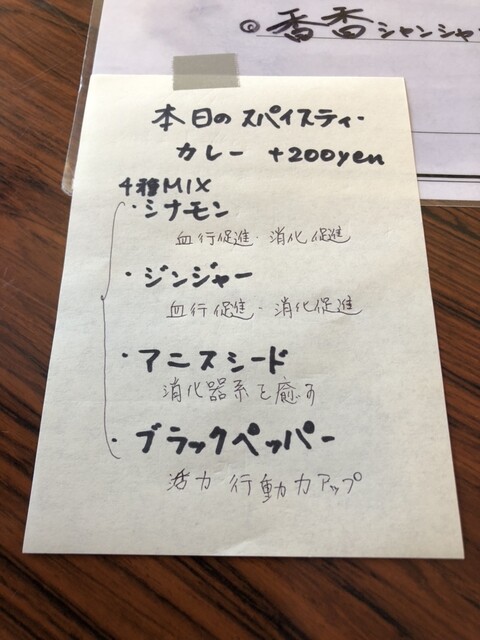 ◎香香シャンシャン
本日のスパイスティ・
カレー +200yen
4種MIX
・シナモン
血行促進・消化促進
・ジンジャー
血行促進・消化促進
・アニスシード
消化器系を癒す
・ブラックペッパー
活力 行動力アップ